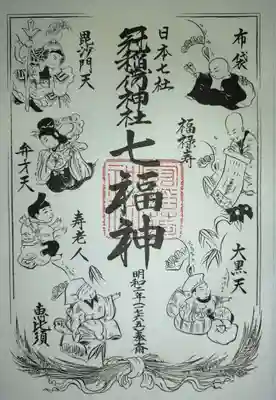 布袋
福禄寿
大黒天
日本七社
冠稲荷神社
七福神
明和二年一七六五奉斎
毘沙門天
弁才天
寿老人
恵比須